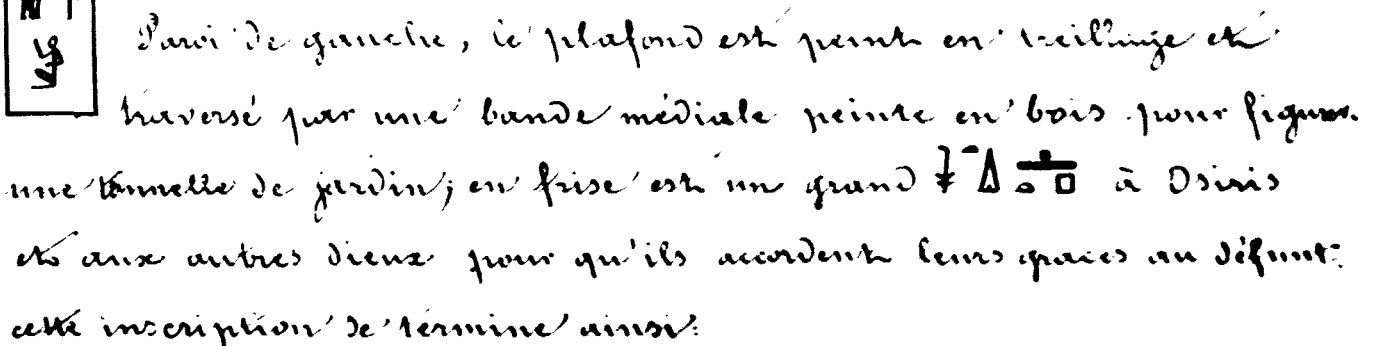 N 1
Paroi de gauche, le plafond est peint en treillage et
traversé par une bande médiale peinte en bois pour figurer
une tonnelle de jardin; en frise est un grand 𓇓𓏏𓐙𓊵𓏏𓊪 à Osiris
et aux autres dieux pour qu'ils accordent leurs graces au défunt:
cette inscription se termine ainsi: